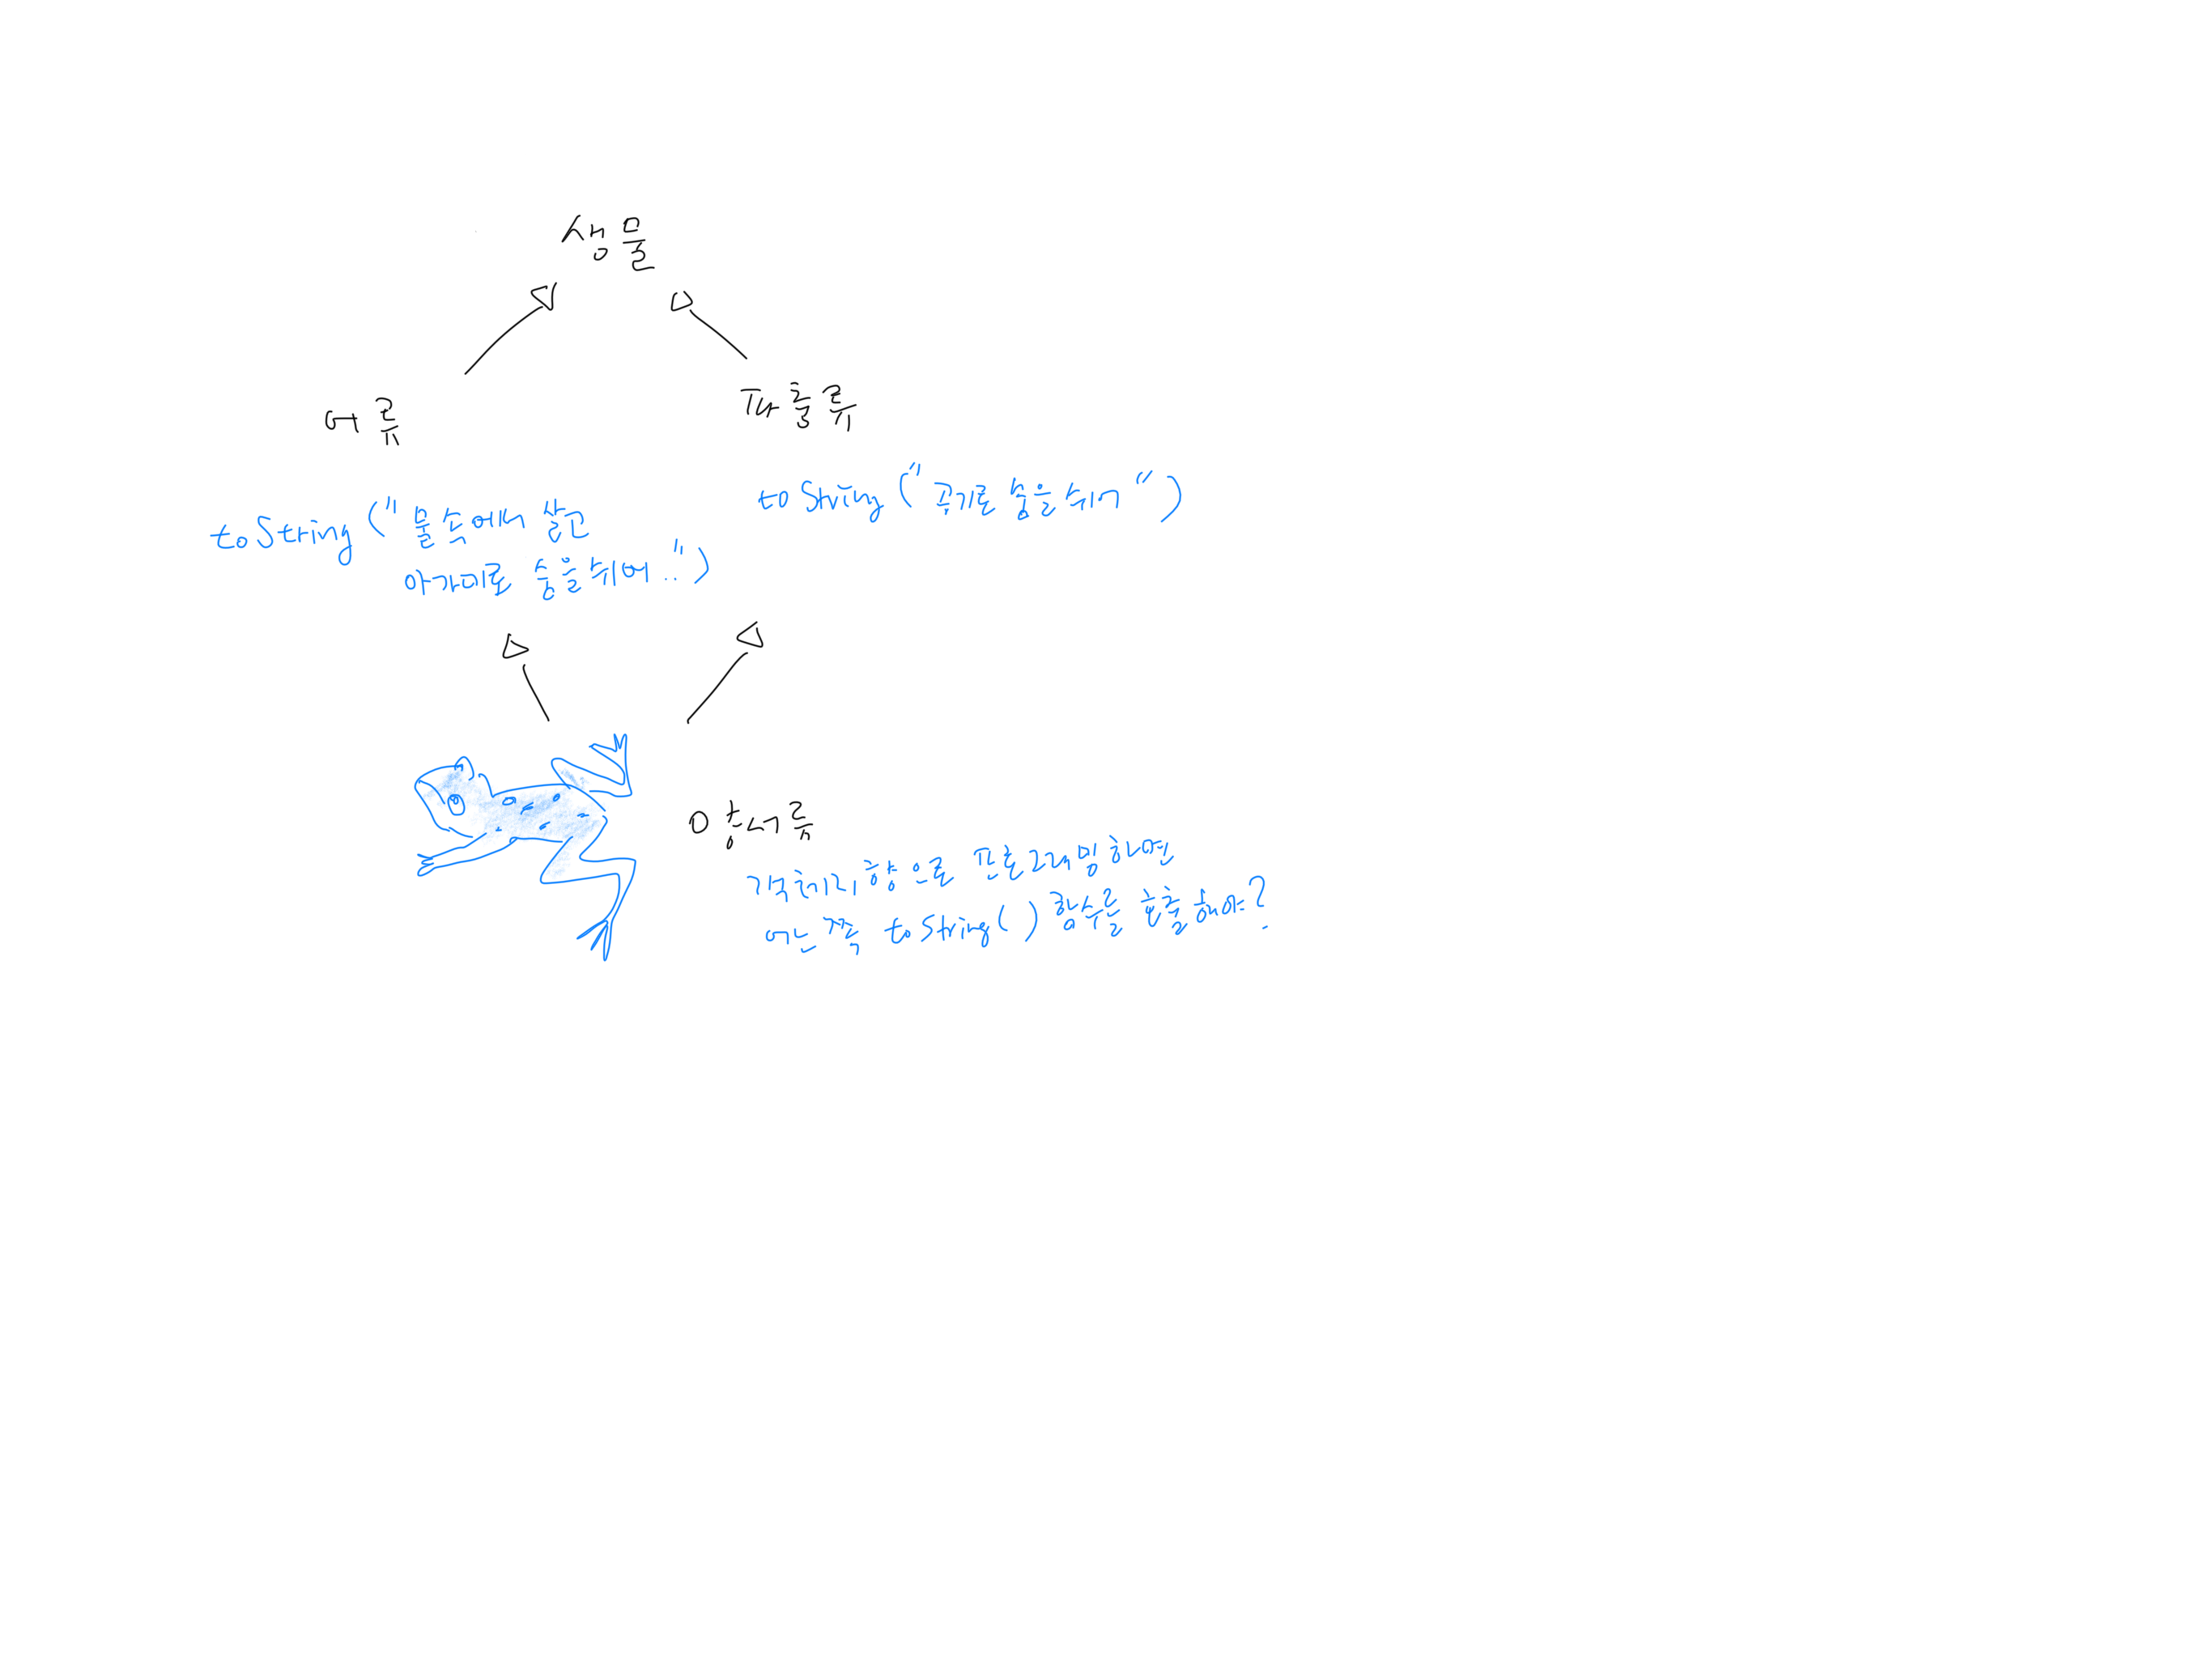 생물
어류
파충류
toString("물속에서 살고
아가미로 숨을쉬며..")
toString("폐기로 숨을 쉬며")
양서류
객체지향으로 프로그래밍하면
어느쪽 toString() 함수를 호출해야?